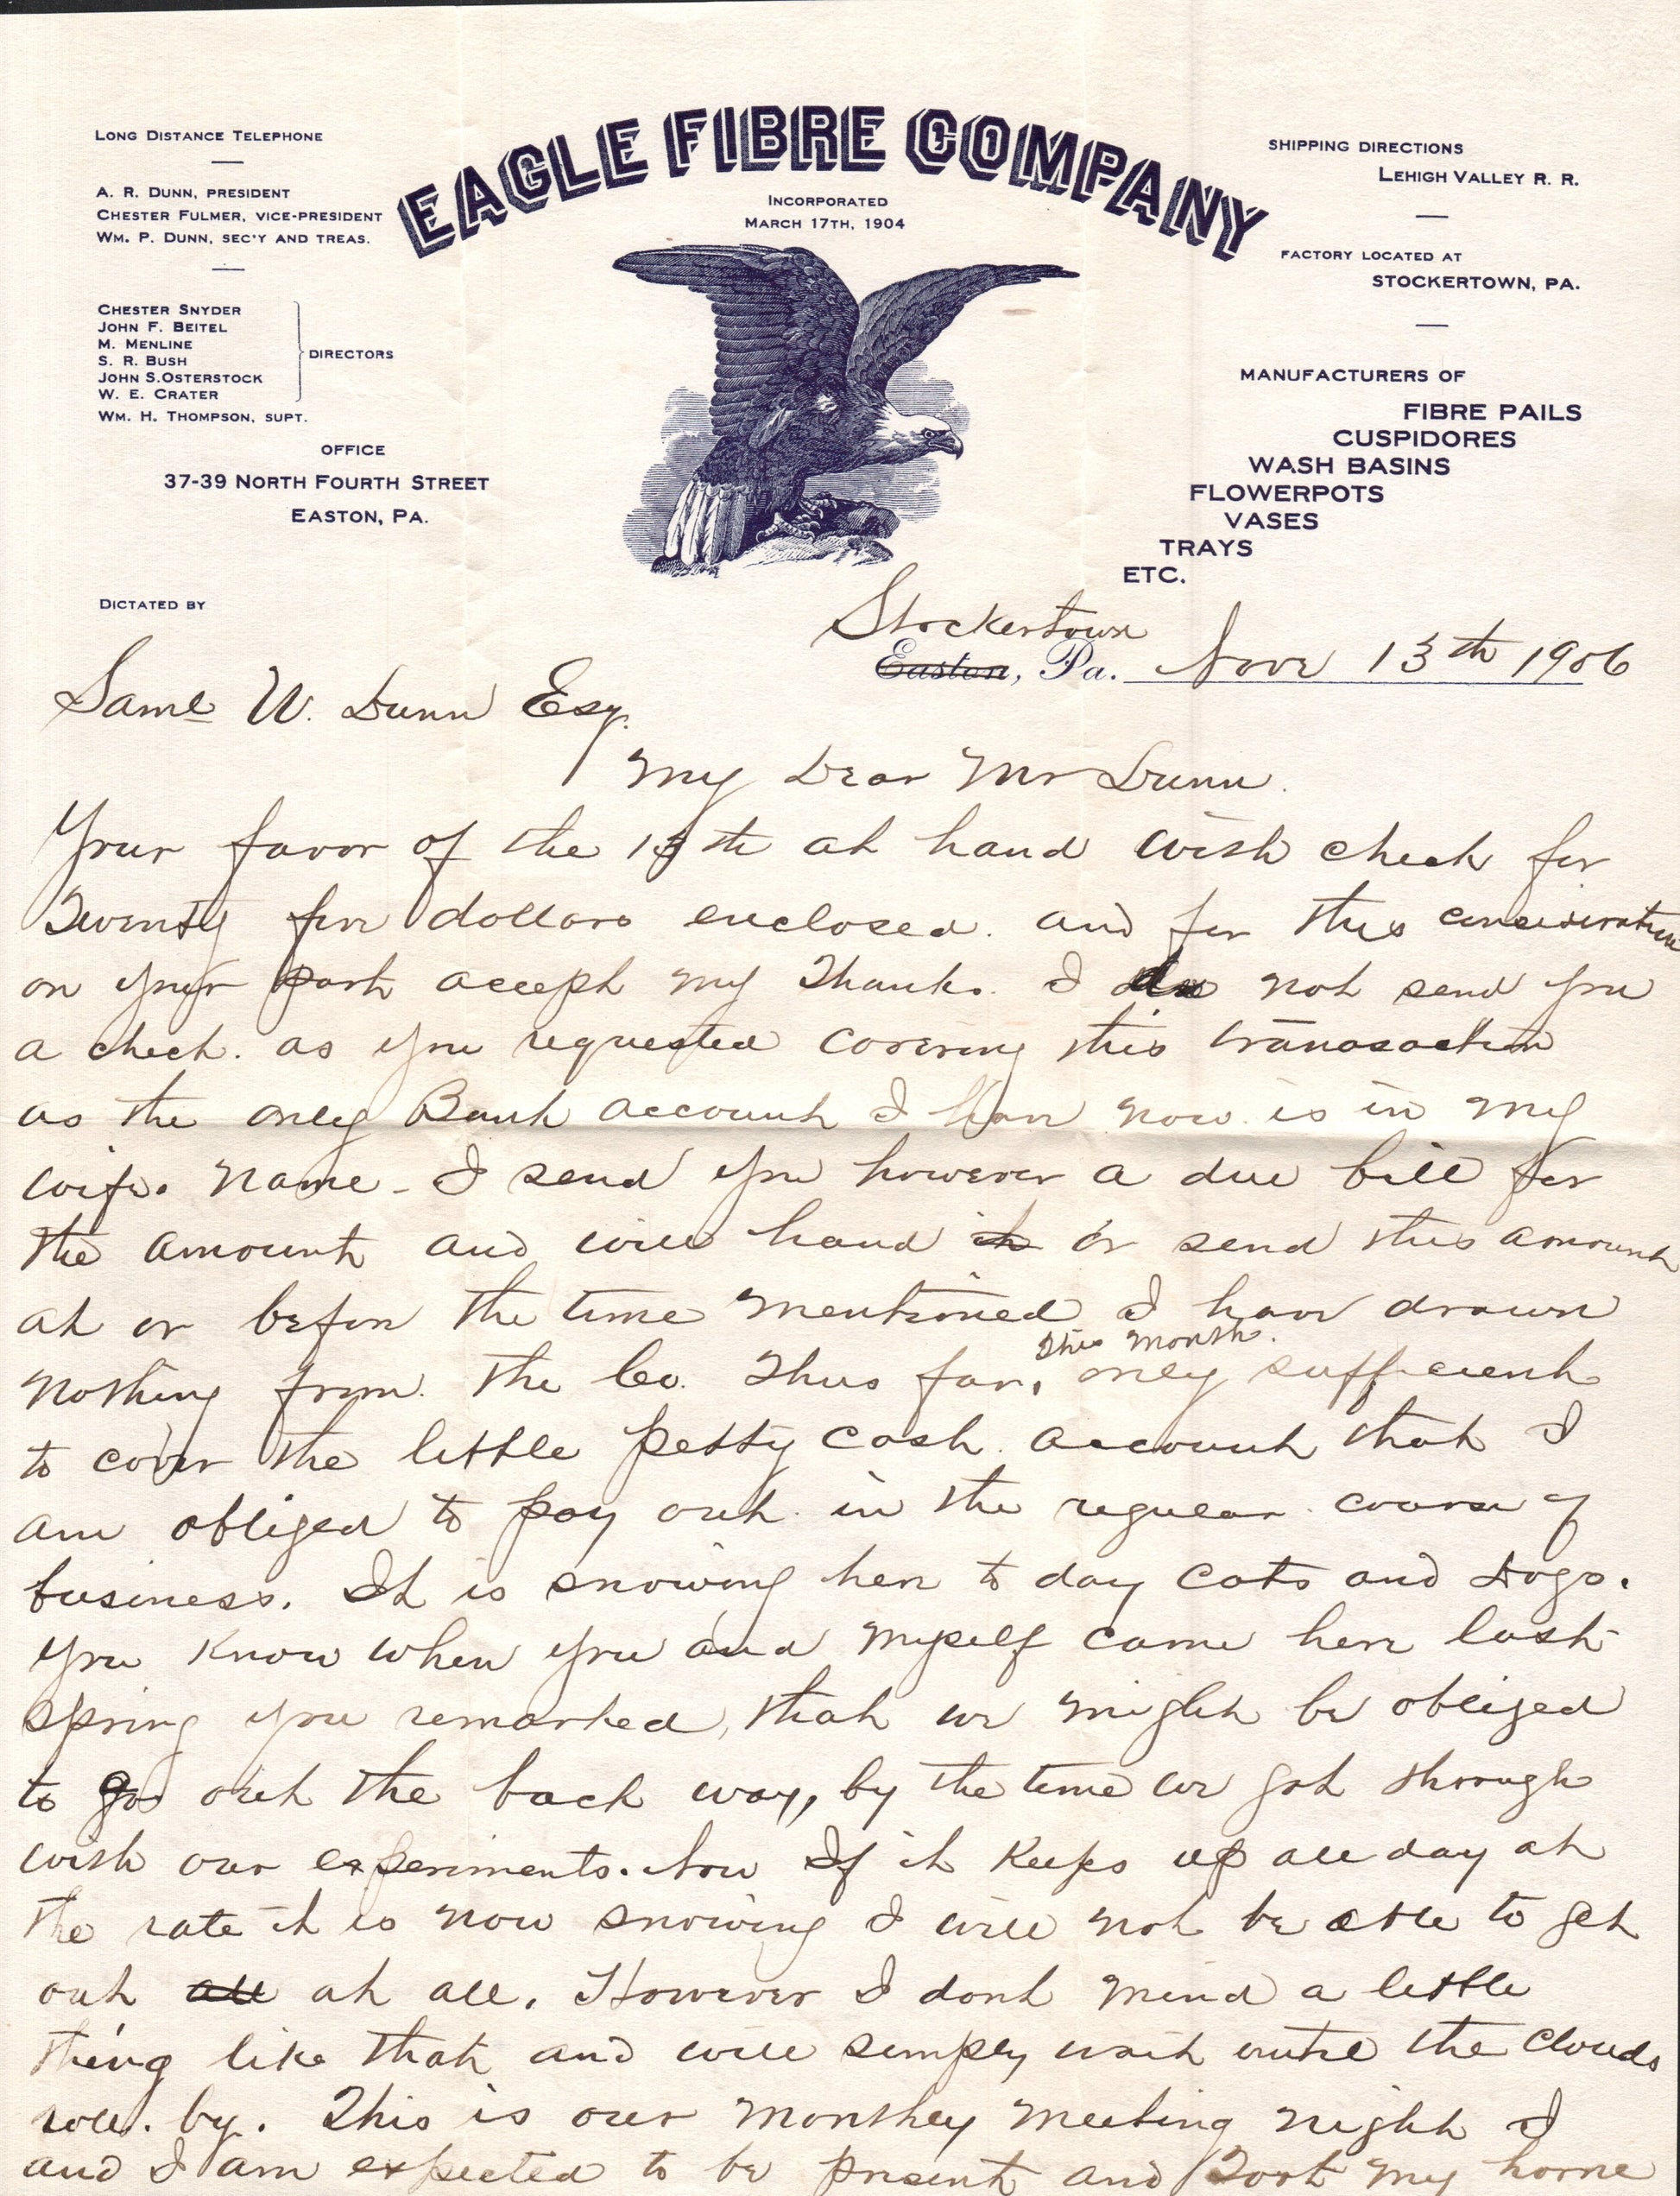 LONG DISTANCE TELEPHONE
A. R. DUNN, PRESIDENT
CHESTER FULMER, VICE-PRESIDENT
WM. P. DUNN, SEC'Y AND TREAS.
CHESTER SNYDER
JOHN F. BEITEL
M. MENLINE
S. R. BUSH
JOHN S. OSTERSTOCK
W. E. CRATER
DIRECTORS
WM. H. THOMPSON, SUPT.
OFFICE
37-39 NORTH FOURTH STREET
EASTON, PA.
DICTATED BY
EAGLE FIBRE COMPANY
INCORPORATED
MARCH 17TH, 1904
SHIPPING DIRECTIONS
LEHIGH VALLEY R. R.
FACTORY LOCATED AT
STOCKERTOWN, PA.
MANUFACTURERS OF
FIBRE PAILS
CUSPIDORES
WASH BASINS
FLOWERPOTS
VASES
TRAYS
ETC.
Stockertown
Easton, Pa. Nov 13th 1906
Saml W. Dunn Esq.
My Dear Mr Dunn.
Your favor of the 13th at hand with check for
Twenty five dollars enclosed. and for this consideration
on your part accept my Thanks. I do not send you
a check. as you requested covering this transaction
as the only Bank account I have now is in my
wifes name - I send you however a due bill for
the amount and will hand it or send this amount
at or before the time mentioned I have drawn
This Month.
nothing from the Co. Thus far, only sufficient
to cover the little petty cash account that I
am obliged to pay out in the regular course of
business. It is snowing here to day Cats and Dogs.
You Know when you and myself came here last
spring you remarked, that we might be obliged
to go out the back way, by the time we got through
with our experiments. Now If it Keeps up all day at
the rate it is now snowing I will not be able to get
out all at all. However I dont mind a little
thing like that and will simply wait until the Clouds
roll by. This is our Monthly Meeting night I
and I am expected to be present and Toot my horne